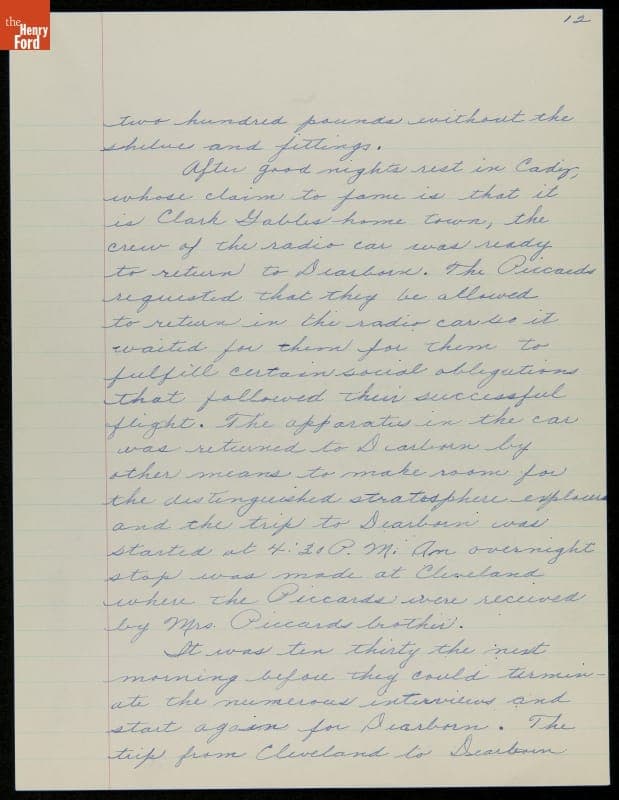 the
Henry
Ford
12
two hundred pounds without the
shelve and fittings.
After good nights rest in Cadiz,
whose claim to fame is that it
is Clark Gables home town, the
crew of the radio car was ready
to return to Dearborn. The Piccards
requested that they be allowed
to return in the radio car so it
waited for them for them to
fulfill certain social obligations
that followed their successful
flight. The apparatus in the car
was returned to Dearborn by
other means to make room for
the distinguished stratosphere explorers
and the trip to Dearborn was
started at 4:30 P.M. An overnight
stop was made at Cleveland
where the Piccards were received
by Mrs. Piccards brother.
It was ten thirty the next
morning before they could termin-
ate the numerous interviews and
start again for Dearborn. The
trip from Cleveland to Dearborn